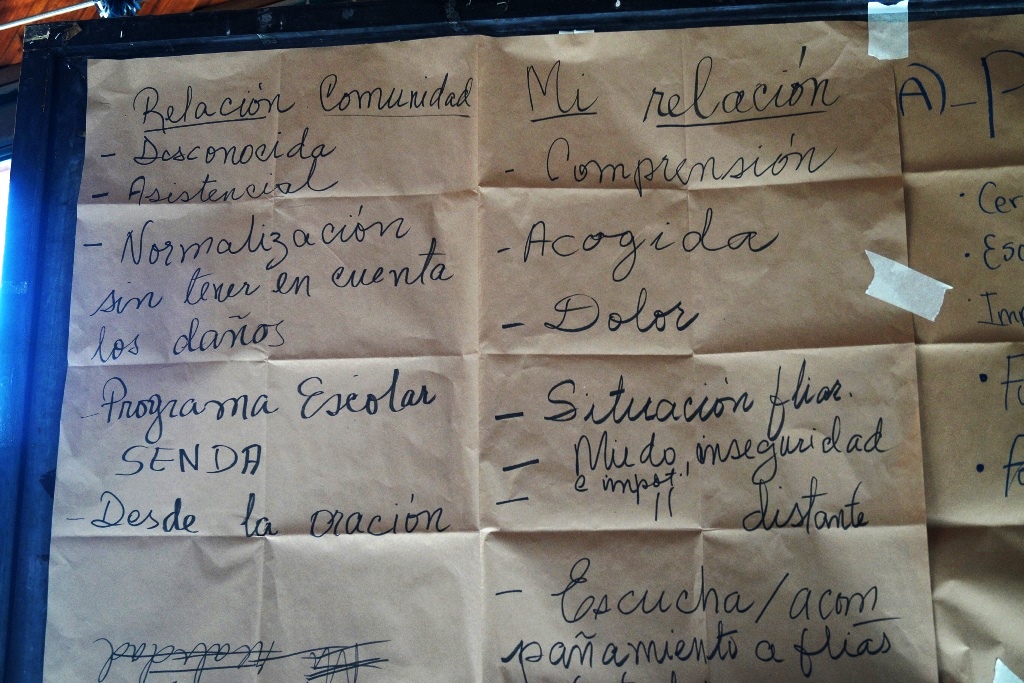 Relación Comunidad
- Desconocida
- Asistencial
- Normalización
sin tener en cuenta
los daños
- Programa Escolar
SENDA
- Desde la oración
Mi relación
- Comprensión
- Acogida
- Dolor
- Situación fliar.
- Miedo, inseguridad
e impot.
- " distante
- Escucha / acom
pañamiento a flias
A) - P
· Cer
· Esc
Imp
· Fo
· fo